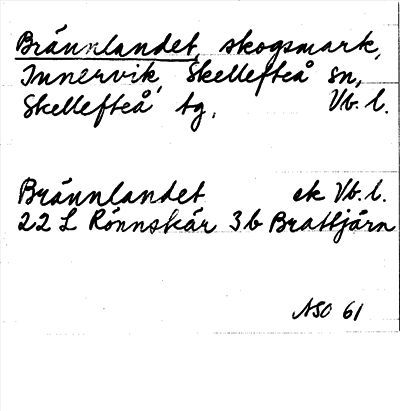 Brännlandet, skogsmark,
Innervik, Skellefteå sn,
Skellefteå tg. Vb. l.
Brännlandet ek Vb. l.
22 L Rönnskär 3 b Brattjärn
NSO 61